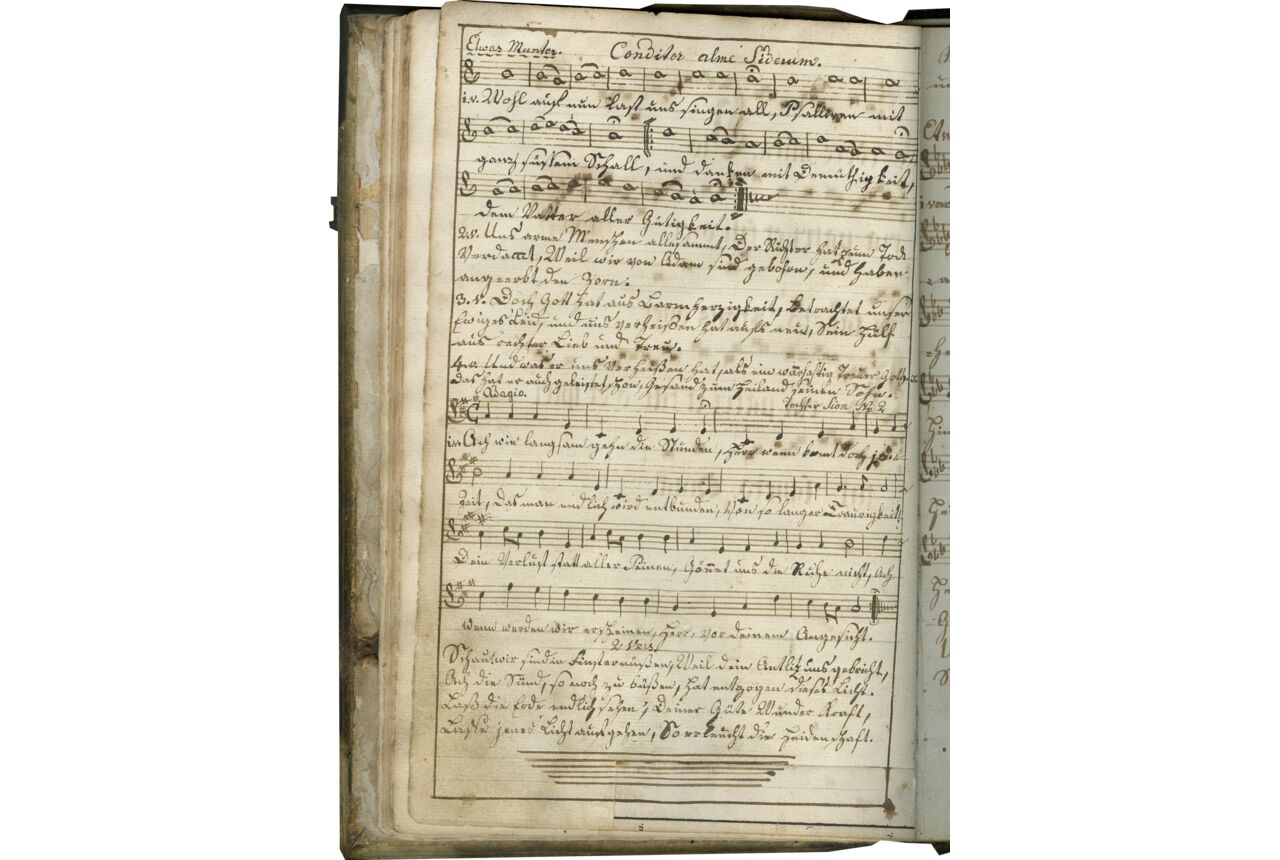 Etwaz Munter. Conditer alme Siderum.
1.v. Wohl auff nun last uns singen all, Psalliren mit
ganz süssem Schall, und danken mit Demüthigkeit,
dem Vatter aller Gütigkeit.
2.v. Uns arme Menschen allesammt, Der Richter hat zum Tod
Verdamt, Weil wir von Adam sind gebohrn, und haben
angeerbt den Zorn.
3.v. Doch Gott hat aus Barmherzigkeit, betrachtet unser
Ewiges Leid, und uns verheißen hat aufs neu, Sein Hülf
aus rechter Lieb und Treu.
4.v. Und was er uns Verheißen hat, als ein wahrhafftig Treuer Gott,
das hat er auch geleistet schon, Gesand zum Heiland seinen Sohn.
Adagio. Tochter Sion No 2
1.v. Ach wie langsam gehn die Stunden, Herr wenn komt doch
Zeit, Das man endlich wird entbunden, Von so langer Traurigkeit.
Dein Verlust statt aller Peinen, Gönnet uns die Ruhe nicht, Ach
wenn werden wir erscheinen, Herr, vor deinem Angesicht.
2 Vers.
Schau wir sind in Finsternüßen, Weil dein Antlitz uns gebricht,
Ach die Sünd, so noch zu büßen, hat entzogen dieses Licht.
Laß die Erde endlich sehen, Deiner Güte Wunder Kraft,
Lasse jenes Licht aufgehen, So erleucht die Heidenschaft.